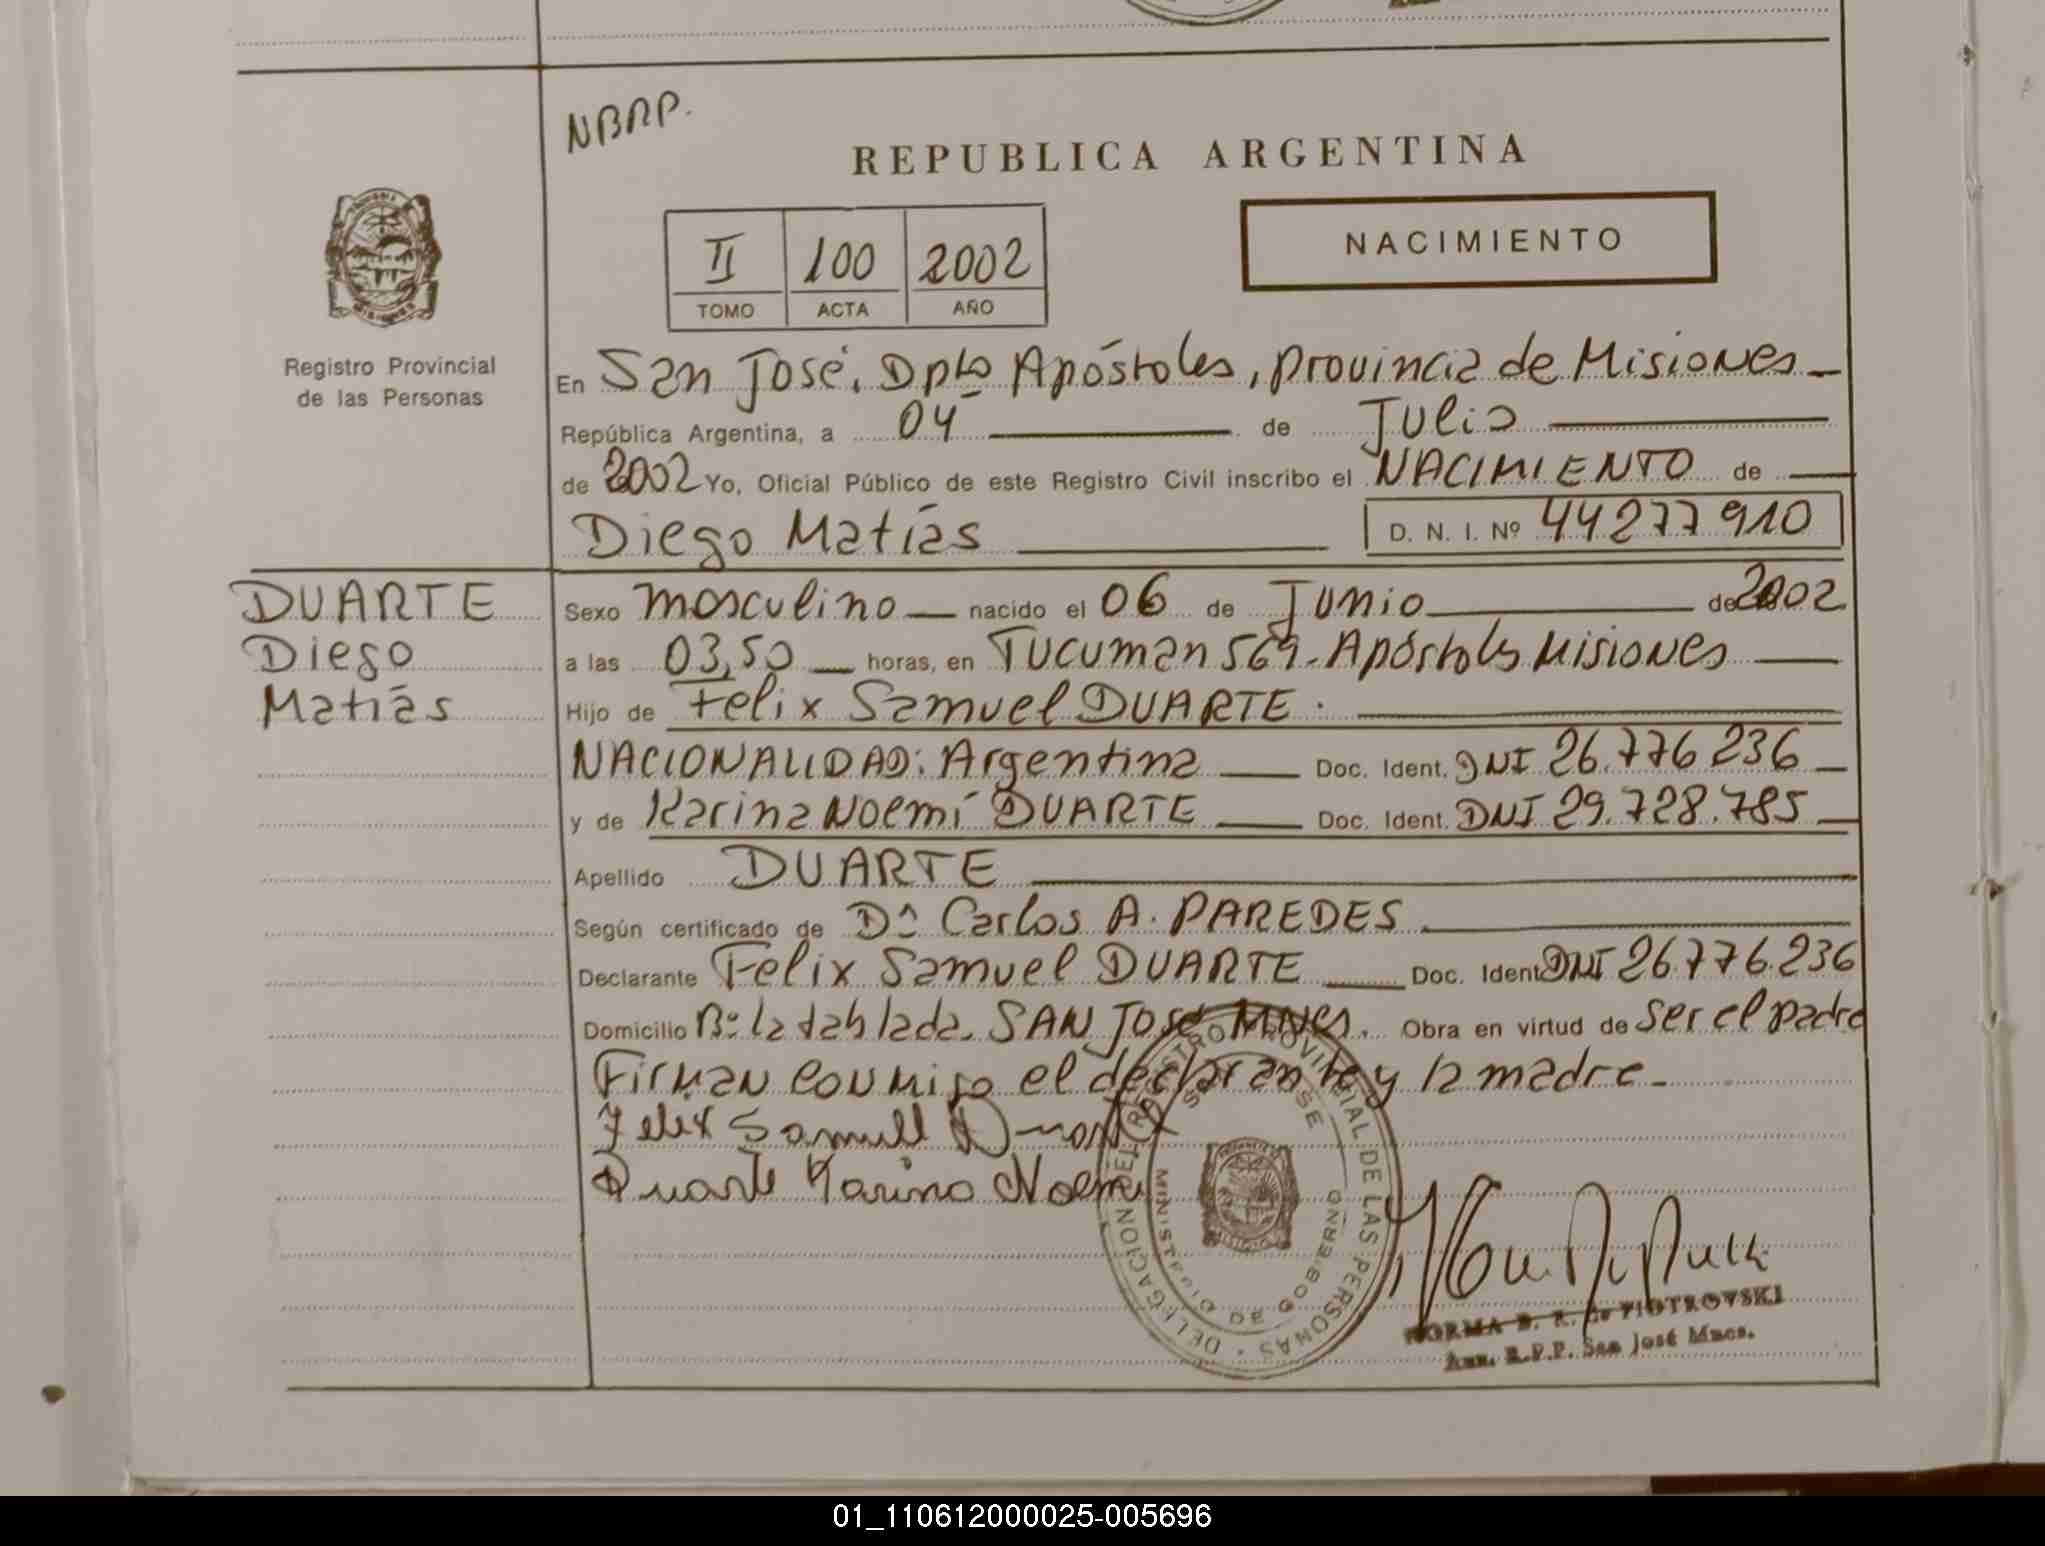 NBRP.
REPUBLICA ARGENTINA
II 100 2002
TOMO ACTA AÑO
NACIMIENTO
Registro Provincial
de las Personas
En San José, Dpto Apóstoles, provincia de Misiones
República Argentina, a 04 de Julio
de 2002 Yo, Oficial Público de este Registro Civil inscribo el NACIMIENTO de
Diego Matías D. N. I. Nº 44277910
DUARTE
Diego
Matías
Sexo masculino nacido el 06 de Junio de 2002
a las 03,50 horas, en Tucuman 569 - Apóstoles Misiones
Hijo de Felix Samuel DUARTE.
NACIONALIDAD: Argentina Doc. Ident. DNI 26.776 236
y de Karina Noemí DUARTE Doc. Ident. DNI 29.728.785
Apellido DUARTE
Según certificado de Dr Carlos A. PAREDES
Declarante Felix Samuel DUARTE Doc. Ident DNI 26.776.236
Domicilio Bº La tablada. SAN José Mnes. Obra en virtud de ser el padre
Firman conmigo el declarante y la madre
Felix Samuel Duarte
Duarte Karina Noemi
DELEGACION DEL REGISTRO PROVINCIAL DE LAS PERSONAS
SAN JOSE
MINISTERIO DE GOBIERNO
NORMA B. R. de PIOTROVSKI
R.P.P. San José Mnes.
01_110612000025-005696